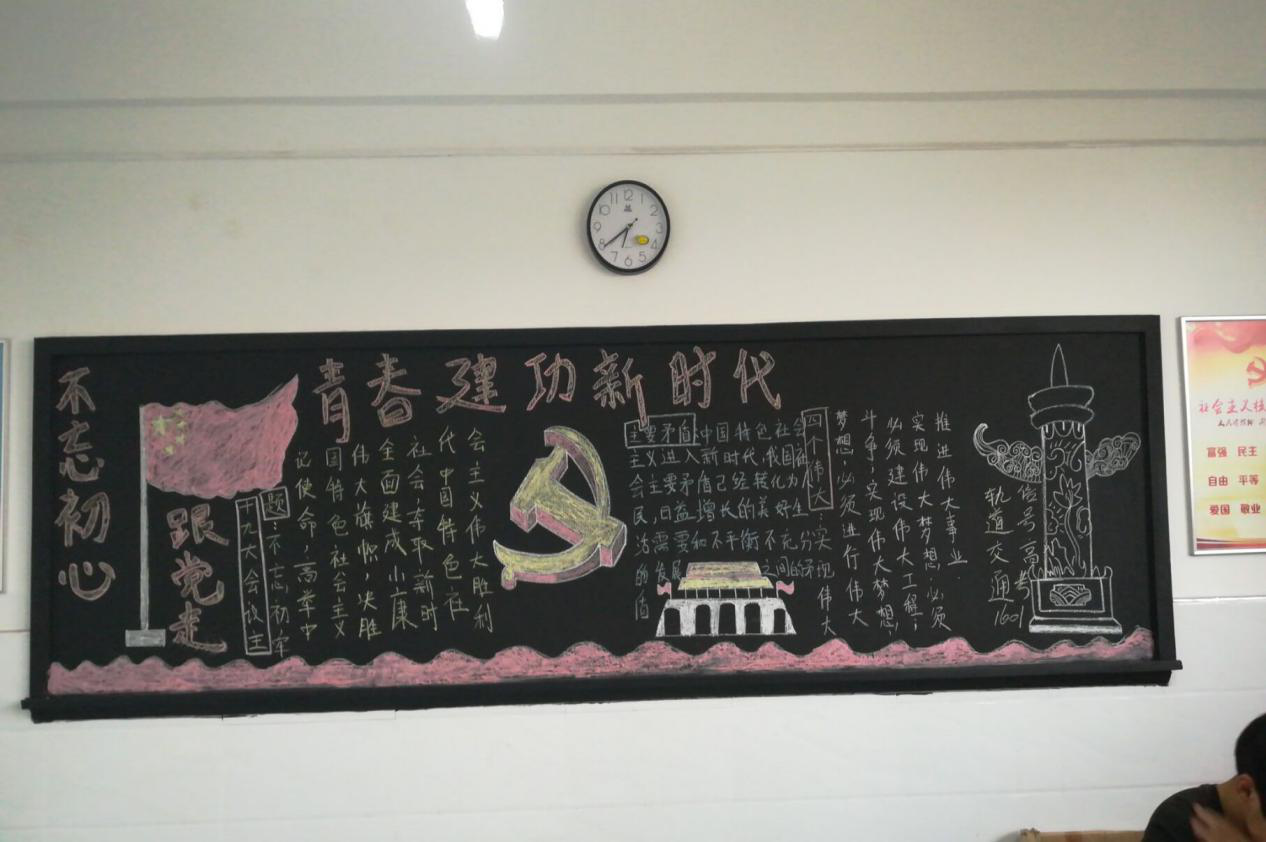 不忘初心
跟党走
青春建功新时代
十九大会议主
题:不忘初牢
记使命,高举中
国特色社会主义
伟大旗帜,决胜
全面建成小康
社会,夺取新时
代中国特色社
会主义伟大胜利
主要矛盾:中国特色社会
主义进入新时代,我国社
会主要矛盾已经转化为人
民,日益增长的美好生
活需要和不平衡不充分
的发展之间的矛
盾
四个伟大:
实现伟大
梦想,必须进行伟大
斗争;实现伟大梦想,
必须建设伟大工程;
实现伟大梦想,必须
推进伟大事业.
信号高
轨道交通
1601
12
11
10
2
3
4
5
6
7
8
富强 民主
自由 平等
爱国 敬业